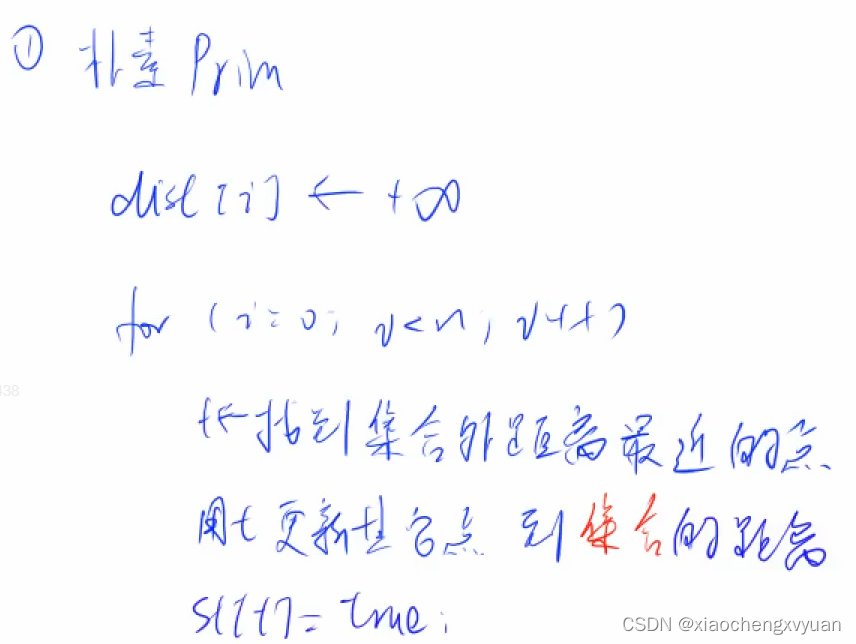 ① 朴素 Prim
dist[i] ← +∞
for (i=0; i<n; i++)
t←找到集合外距离最近的点
用t更新其它点到集合的距离
st[t]=true;
438
CSDN @xiaochengxvyuan